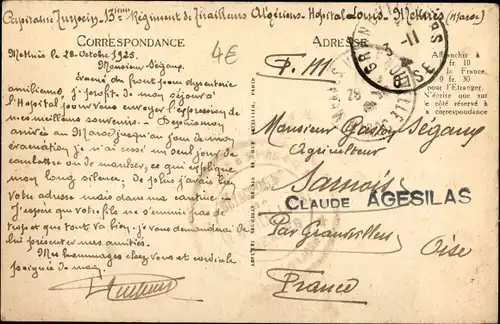 Capitaine 13ième Régiment de Tirailleurs Algériens - Hôpital Louis - Meknès (Maroc)
CORRESPONDANCE
4€
ADRESSE
Meknès le 28 Octobre 1925
Monsieur Ségaux
Evacué du front pour dysenterie
amibienne, je profite de mon séjour à
l'Hôpital pour vous envoyer l'expression de
mes meilleurs souvenirs. Depuis mon
arrivée au Maroc jusqu'au jour de mon
évacuation je n'ai cessé un seul jour de
combattre ou de marcher, ce qui explique
mon long silence. De plus j'avais bien
votre adresse mais dans ma cantine.
J'espère que vous ne m'en voudrez pas de
et que tout va bien. Je vous demanderai de
lui présenter mes amitiés.
Mes hommages chez vous et cordiale
poignée de main
F. M.
Monsieur Gaston Ségaux
Agriculteur
Sarnois
CLAUDE AGESILAS
Par Grandvilliers
Oise
France
Affranchir à
fr. 10
la France,
fr. 30
pour l'Etranger.
N'écrire que sur
le côté réservé à
la correspondance
OISE